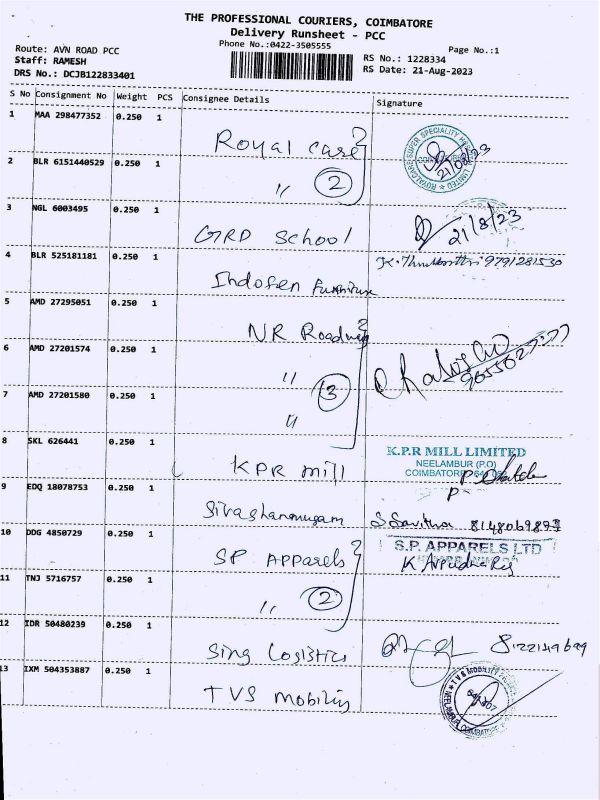 THE PROFESSIONAL COURIERS, COIMBATORE
Delivery Runsheet - PCC
Phone No.:0422-3505555
Page No.:1
Route: AVN ROAD PCC
Staff: RAMESH
DRS No.: DCJB122833401
RS No.: 1228334
RS Date: 21-Aug-2023
S No Consignment No Weight PCS Consignee Details Signature
1 MAA 298477352 0.250 1
Royal Care
21/08/23
2 BLR 6151440529 0.250 1
" 2
3 NGL 6003495 0.250 1
GRD School
21/8/23
4 BLR 525181181 0.250 1
9791281530
Indofen Furniture
5 AMD 27295051 0.250 1
NR Roadways
6 AMD 27201574 0.250 1
" 3
7 AMD 27201580 0.250 1
"
8 SKL 626441 0.250 1
KPR mill
K.P.R MILL LIMITED
NEELAMBUR (P.O)
COIMBATORE
9 EDQ 18078753 0.250 1
Sivashanmugam
S Savitha 8148069893
10 DDG 4850729 0.250 1
SP Apparels
S.P. APPARELS LTD
11 TNJ 5716757 0.250 1
" 2
12 IDR 50480239 0.250 1
Sing Logistics
8122149699
13 IXM 504353887 0.250 1
TVS Mobility